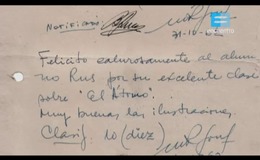 NOTIFICADO:
31-10-62
Felicito calurosamente al alum
no Rus por su excelente clase
sobre "El Átomo".
Muy buenas las ilustraciones.
Clasif. 10 (diez)